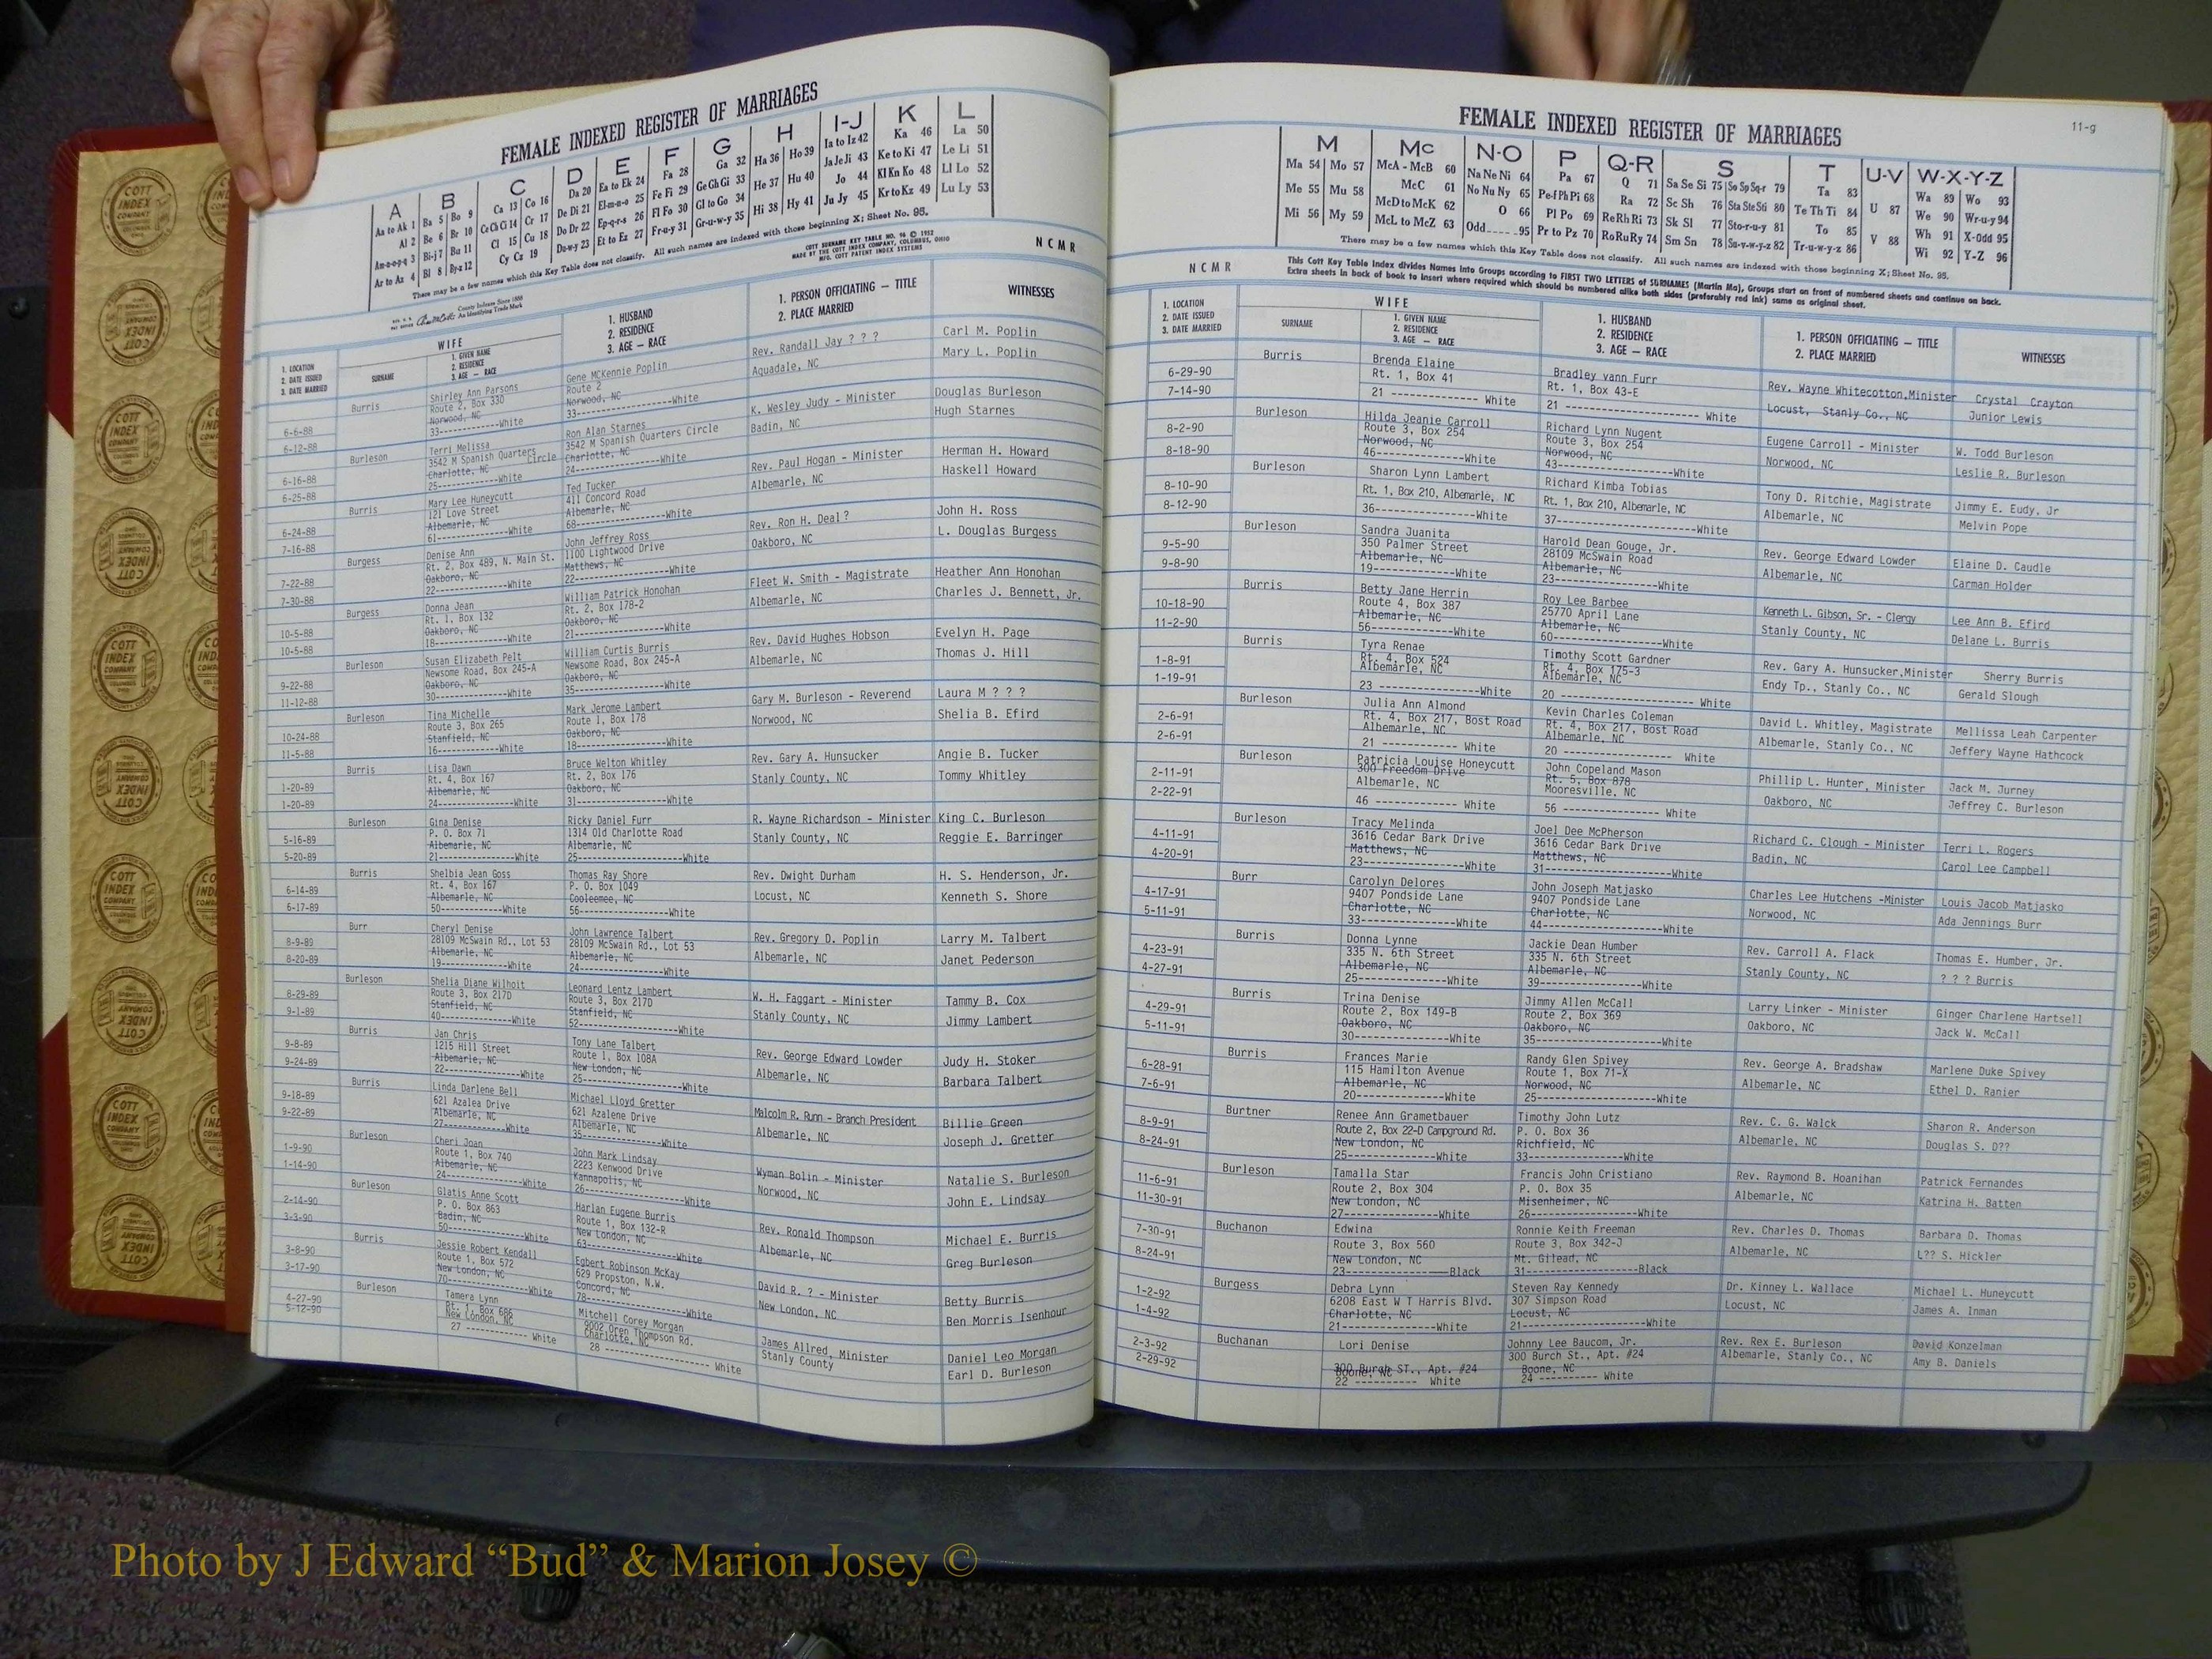 FEMALE INDEXED REGISTER OF MARRIAGES
A B C D E F G H I-J K L
Aa to Ak 1 Ba 5 Bo 9 Ca 13 Co 16 Da 20 Ea to Ek 24 Fa 28 Ga 32 Ha 36 Ho 39 Ia to Iz 42 Ka 46 La 50
Al 2 Be 6 Br 10 Ce Ch Ci 14 Cr 17 De Di 21 El-m-n-o 25 Fe Fi 29 Ge Gh Gi 33 He 37 Hu 40 Ja Je Ji 43 Ke to Ki 47 Le Li 51
Am-n-o-p-q 3 Bi-j 7 Bu 11 Cl 15 Cu 18 Do Dr 22 Ep-q-r-s 26 Fl Fo 30 Gl to Go 34 Hi 38 Hy 41 Jo 44 Kl Kn Ko 48 Ll Lo 52
Ar to Az 4 Bl 8 By-z 12 Cy Cz 19 Du-w-y 23 Et to Ez 27 Fr-u-y 31 Gr-u-w-y 35 Ju Jy 45 Kr to Kz 49 Lu Ly 53
There may be a few names which this Key Table does not classify. All such names are indexed with those beginning X; Sheet No. 95.
COTT SURNAME KEY TABLE NO. 96 © 1952
MADE BY THE COTT INDEX COMPANY, COLUMBUS, OHIO
MFG. COTT PATENT INDEX SYSTEMS
NCMR
County Indexes Since 1888
An Identifying Trade Mark
1. LOCATION
2. DATE ISSUED
3. DATE MARRIED
WIFE
SURNAME
1. GIVEN NAME
2. RESIDENCE
3. AGE — RACE
1. HUSBAND
2. RESIDENCE
3. AGE — RACE
1. PERSON OFFICIATING — TITLE
2. PLACE MARRIED
WITNESSES
6-6-88
6-12-88
Burris
Shirley Ann Parsons
Route 2, Box 330
Norwood, NC
33-----------White
Gene McKennie Poplin
Route 2
Norwood, NC
33----------------White
Rev. Randall Jay ? ? ?
Aquadale, NC
Carl M. Poplin
Mary L. Poplin
6-16-88
6-25-88
Burleson
Terri Melissa
3542 M Spanish Quarters Circle
Charlotte, NC
25-----------White
Ron Alan Starnes
3542 M Spanish Quarters Circle
Charlotte, NC
24--------------White
K. Wesley Judy - Minister
Badin, NC
Douglas Burleson
Hugh Starnes
6-24-88
7-16-88
Burris
Mary Lee Huneycutt
121 Love Street
Albemarle, NC
61------------White
Ted Tucker
411 Concord Road
Albemarle, NC
68---------------White
Rev. Paul Hogan - Minister
Albemarle, NC
Herman H. Howard
Haskell Howard
7-22-88
7-30-88
Burgess
Denise Ann
Rt. 2, Box 489, N. Main St.
Oakboro, NC
22------------White
John Jeffrey Ross
1100 Lightwood Drive
Matthews, NC
22----------------White
Rev. Ron H. Deal?
Oakboro, NC
John H. Ross
L. Douglas Burgess
10-5-88
10-5-88
Burgess
Donna Jean
Rt. 1, Box 132
Oakboro, NC
18------------White
William Patrick Honohan
Rt. 2, Box 178-2
Oakboro, NC
21---------------White
Fleet W. Smith - Magistrate
Albemarle, NC
Heather Ann Honohan
Charles J. Bennett, Jr.
9-22-88
11-12-88
Burleson
Susan Elizabeth Pelt
Newsome Road, Box 245-A
Oakboro, NC
30------------White
William Curtis Burris
Newsome Road, Box 245-A
Oakboro, NC
35---------------White
Rev. David Hughes Hobson
Albemarle, NC
Evelyn H. Page
Thomas J. Hill
10-24-88
11-5-88
Burleson
Tina Michelle
Route 3, Box 265
Stanfield, NC
16------------White
Mark Jerome Lambert
Route 1, Box 178
Oakboro, NC
18---------------White
Gary M. Burleson - Reverend
Norwood, NC
Laura M ? ? ?
Shelia B. Efird
1-20-89
1-20-89
Burris
Lisa Dawn
Rt. 4, Box 167
Albemarle, NC
24-------------White
Bruce Welton Whitley
Rt. 2, Box 176
Oakboro, NC
31---------------White
Rev. Gary A. Hunsucker
Stanly County, NC
Angie B. Tucker
Tommy Whitley
5-16-89
5-20-89
Burleson
Gina Denise
P. O. Box 71
Albemarle, NC
21-------------White
Ricky Daniel Furr
1314 Old Charlotte Road
Albemarle, NC
25------------------White
R. Wayne Richardson - Minister
Stanly County, NC
King C. Burleson
Reggie E. Barringer
6-14-89
6-17-89
Burris
Shelbia Jean Goss
Rt. 4, Box 167
Albemarle, NC
50-----------White
Thomas Ray Shore
P. O. Box 1049
Cooleemee, NC
56---------------White
Rev. Dwight Durham
Locust, NC
H. S. Henderson, Jr.
Kenneth S. Shore
8-9-89
8-20-89
Burr
Cheryl Denise
28109 McSwain Rd., Lot 53
Albemarle, NC
19------------White
John Lawrence Talbert
28109 McSwain Rd., Lot 53
Albemarle, NC
24---------------White
Rev. Gregory D. Poplin
Albemarle, NC
Larry M. Talbert
Janet Pederson
8-29-89
9-1-89
Burleson
Shelia Diane Wilhoit
Route 3, Box 217D
Stanfield, NC
40-------------White
Leonard Lentz Lambert
Route 3, Box 217D
Stanfield, NC
52-----------------White
W. H. Faggart - Minister
Stanly County, NC
Tammy B. Cox
Jimmy Lambert
9-8-89
9-24-89
Burris
Jan Chris
1215 Hill Street
Albemarle, NC
22--------------White
Tony Lane Talbert
Route 1, Box 108A
New London, NC
25-----------------White
Rev. George Edward Lowder
Albemarle, NC
Judy H. Stoker
Barbara Talbert
9-18-89
9-22-89
Burris
Linda Darlene Bell
621 Azalea Drive
Albemarle, NC
27------------White
Michael Lloyd Gretter
621 Azalene Drive
Albemarle, NC
35-------------White
Malcolm R. Runn - Branch President
Albemarle, NC
Billie Green
Joseph J. Gretter
1-9-90
1-14-90
Burleson
Cheri Joan
Route 1, Box 740
Albemarle, NC
24--------------White
John Mark Lindsay
2223 Kenwood Drive
Kannapolis, NC
26-----------------White
Wyman Bolin - Minister
Norwood, NC
Natalie S. Burleson
John E. Lindsay
2-14-90
3-3-90
Burleson
Glatis Anne Scott
P. O. Box 863
Badin, NC
50--------------White
Harlan Eugene Burris
Route 1, Box 132-R
New London, NC
63---------------White
Rev. Ronald Thompson
Albemarle, NC
Michael E. Burris
Greg Burleson
3-8-90
3-17-90
Burris
Jessie Robert Kendall
Route 1, Box 572
New London, NC
70---------------White
Egbert Robinson McKay
629 Propston, N.W.
Concord, NC
78-----------------White
David R. ? - Minister
New London, NC
Betty Burris
Ben Morris Isenhour
4-27-90
5-12-90
Burleson
Tamera Lynn
Rt. 1, Box 686
New London, NC
27 ------------ White
Mitchell Corey Morgan
9002 Oren Thompson Rd.
Charlotte, NC
28 ----------------- White
James Allred, Minister
Stanly County
Daniel Leo Morgan
Earl D. Burleson
FEMALE INDEXED REGISTER OF MARRIAGES
11-g
M Mc N-O P Q-R S T U-V W-X-Y-Z
Ma 54 Mo 57 McA - McB 60 Na Ne Ni 64 Pa 67 Q 71 Sa Se Si 75 So Sp Sq-r 79 Ta 83 U 87 Wa 89 Wo 93
Me 55 Mu 58 McC 61 No Nu Ny 65 Pe-Pf Ph Pi 68 Ra 72 Sc Sh 76 Sta Ste Sti 80 Te Th Ti 84 V 88 We 90 Wr-u-y 94
Mi 56 My 59 McD to McK 62 O 66 Pl Po 69 Re Rh Ri 73 Sk Sl 77 Sto-r-u-y 81 To 85 Wh 91 X-Odd 95
McL to McZ 63 Odd 95 Pr to Pz 70 Ro Ru Ry 74 Sm Sn 78 Su-v-w-y-z 82 Tr-u-w-y-z 86 Wi 92 Y-Z 96
There may be a few names which this Key Table does not classify. All such names are indexed with those beginning X; Sheet No. 95.
NCMR
This Cott Key Table Index divides Names into Groups according to FIRST TWO LETTERS of SURNAMES (Martin Ma), Groups start on front of numbered sheets and continue on back.
Extra sheets in back of book to insert where required which should be numbered alike both sides (preferably red ink) same as original sheet.
1. LOCATION
2. DATE ISSUED
3. DATE MARRIED
WIFE
SURNAME
1. GIVEN NAME
2. RESIDENCE
3. AGE — RACE
1. HUSBAND
2. RESIDENCE
3. AGE — RACE
1. PERSON OFFICIATING — TITLE
2. PLACE MARRIED
WITNESSES
6-29-90
7-14-90
Burris
Brenda Elaine
Rt. 1, Box 41
21 ----------- White
Bradley vann Furr
Rt. 1, Box 43-E
21 ------------------- White
Rev. Wayne Whitecotton,Minister
Locust, Stanly Co., NC
Crystal Crayton
Junior Lewis
8-2-90
8-18-90
Burleson
Hilda Jeanie Carroll
Route 3, Box 254
Norwood, NC
46-------------White
Richard Lynn Nugent
Route 3, Box 254
Norwood, NC
43-----------------White
Eugene Carroll - Minister
Norwood, NC
W. Todd Burleson
Leslie R. Burleson
8-10-90
8-12-90
Burleson
Sharon Lynn Lambert
Rt. 1, Box 210, Albemarle, NC
36---------------White
Richard Kimba Tobias
Rt. 1, Box 210, Albemarle, NC
37--------------------White
Tony D. Ritchie, Magistrate
Albemarle, NC
Jimmy E. Eudy, Jr
Melvin Pope
9-5-90
9-8-90
Burleson
Sandra Juanita
350 Palmer Street
Albemarle, NC
19-------------White
Harold Dean Gouge, Jr.
28109 McSwain Road
Albemarle, NC
23---------------White
Rev. George Edward Lowder
Albemarle, NC
Elaine D. Caudle
Carman Holder
10-18-90
11-2-90
Burris
Betty Jane Herrin
Route 4, Box 387
Albemarle, NC
56------------White
Roy Lee Barbee
25770 April Lane
Albemarle, NC
60----------------White
Kenneth L. Gibson, Sr. - Clergy
Stanly County, NC
Lee Ann B. Efird
Delane L. Burris
1-8-91
1-19-91
Burris
Tyra Renae
Rt. 4, Box 524
Albemarle, NC
23 ---------------White
Timothy Scott Gardner
Rt. 4, Box 175-3
Albemarle, NC
20 ------------------- White
Rev. Gary A. Hunsucker,Minister
Endy Tp., Stanly Co., NC
Sherry Burris
Gerald Slough
2-6-91
2-6-91
Burleson
Julia Ann Almond
Rt. 4, Box 217, Bost Road
Albemarle, NC
21 ----------- White
Kevin Charles Coleman
Rt. 4, Box 217, Bost Road
Albemarle, NC
20 ---------------- White
David L. Whitley, Magistrate
Albemarle, Stanly Co., NC
Mellissa Leah Carpenter
Jeffery Wayne Hathcock
2-11-91
2-22-91
Burleson
Patricia Louise Honeycutt
300 Freedom Drive
Albemarle, NC
46 ------------ White
John Copeland Mason
Rt. 5, Box 878
Mooresville, NC
56 -------------- White
Phillip L. Hunter, Minister
Oakboro, NC
Jack M. Jurney
Jeffrey C. Burleson
4-11-91
4-20-91
Burleson
Tracy Melinda
3616 Cedar Bark Drive
Matthews, NC
23--------------White
Joel Dee McPherson
3616 Cedar Bark Drive
Matthews, NC
31-------------------White
Richard C. Clough - Minister
Badin, NC
Terri L. Rogers
Carol Lee Campbell
4-17-91
5-11-91
Burr
Carolyn Delores
9407 Pondside Lane
Charlotte, NC
33-------------White
John Joseph Matjasko
9407 Pondside Lane
Charlotte, NC
44------------------White
Charles Lee Hutchens -Minister
Norwood, NC
Louis Jacob Matjasko
Ada Jennings Burr
4-23-91
4-27-91
Burris
Donna Lynne
335 N. 6th Street
Albemarle, NC
25------------White
Jackie Dean Humber
335 N. 6th Street
Albemarle, NC
39---------------White
Rev. Carroll A. Flack
Stanly County, NC
Thomas E. Humber, Jr.
? ? ? Burris
4-29-91
5-11-91
Burris
Trina Denise
Route 2, Box 149-B
Oakboro, NC
30--------------White
Jimmy Allen McCall
Route 2, Box 369
Oakboro, NC
35-------------------White
Larry Linker - Minister
Oakboro, NC
Ginger Charlene Hartsell
Jack W. McCall
6-28-91
7-6-91
Burris
Frances Marie
115 Hamilton Avenue
Albemarle, NC
20-------------White
Randy Glen Spivey
Route 1, Box 71-X
Norwood, NC
25------------------White
Rev. George A. Bradshaw
Albemarle, NC
Marlene Duke Spivey
Ethel D. Ranier
8-9-91
8-24-91
Burtner
Renee Ann Grametbauer
Route 2, Box 22-D Campground Rd.
New London, NC
25-------------White
Timothy John Lutz
P. O. Box 36
Richfield, NC
33--------------White
Rev. C. G. Walck
Albemarle, NC
Sharon R. Anderson
Douglas S. D??
11-6-91
11-30-91
Burleson
Tamalla Star
Route 2, Box 304
New London, NC
27--------------White
Francis John Cristiano
P. O. Box 35
Misenheimer, NC
26-----------------White
Rev. Raymond B. Hoanihan
Albemarle, NC
Patrick Fernandes
Katrina H. Batten
7-30-91
8-24-91
Buchanon
Edwina
Route 3, Box 560
New London, NC
23---------------Black
Ronnie Keith Freeman
Route 3, Box 342-J
Mt. Gilead, NC
31----------------Black
Rev. Charles D. Thomas
Albemarle, NC
Barbara D. Thomas
L?? S. Hickler
1-2-92
1-4-92
Burgess
Debra Lynn
6208 East W T Harris Blvd.
Charlotte, NC
21-------------White
Steven Ray Kennedy
307 Simpson Road
Locust, NC
21--------------White
Dr. Kinney L. Wallace
Locust, NC
Michael L. Huneycutt
James A. Inman
2-3-92
2-29-92
Buchanan
Lori Denise
300 Burch ST., Apt. #24
Boone, NC
22 ---------- White
Johnny Lee Baucom, Jr.
300 Burch St., Apt. #24
Boone, NC
24 ---------- White
Rev. Rex E. Burleson
Albemarle, Stanly Co., NC
David Konzelman
Amy B. Daniels
COTT
INDEX
COMPANY
Photo by J Edward “Bud” & Marion Josey ©